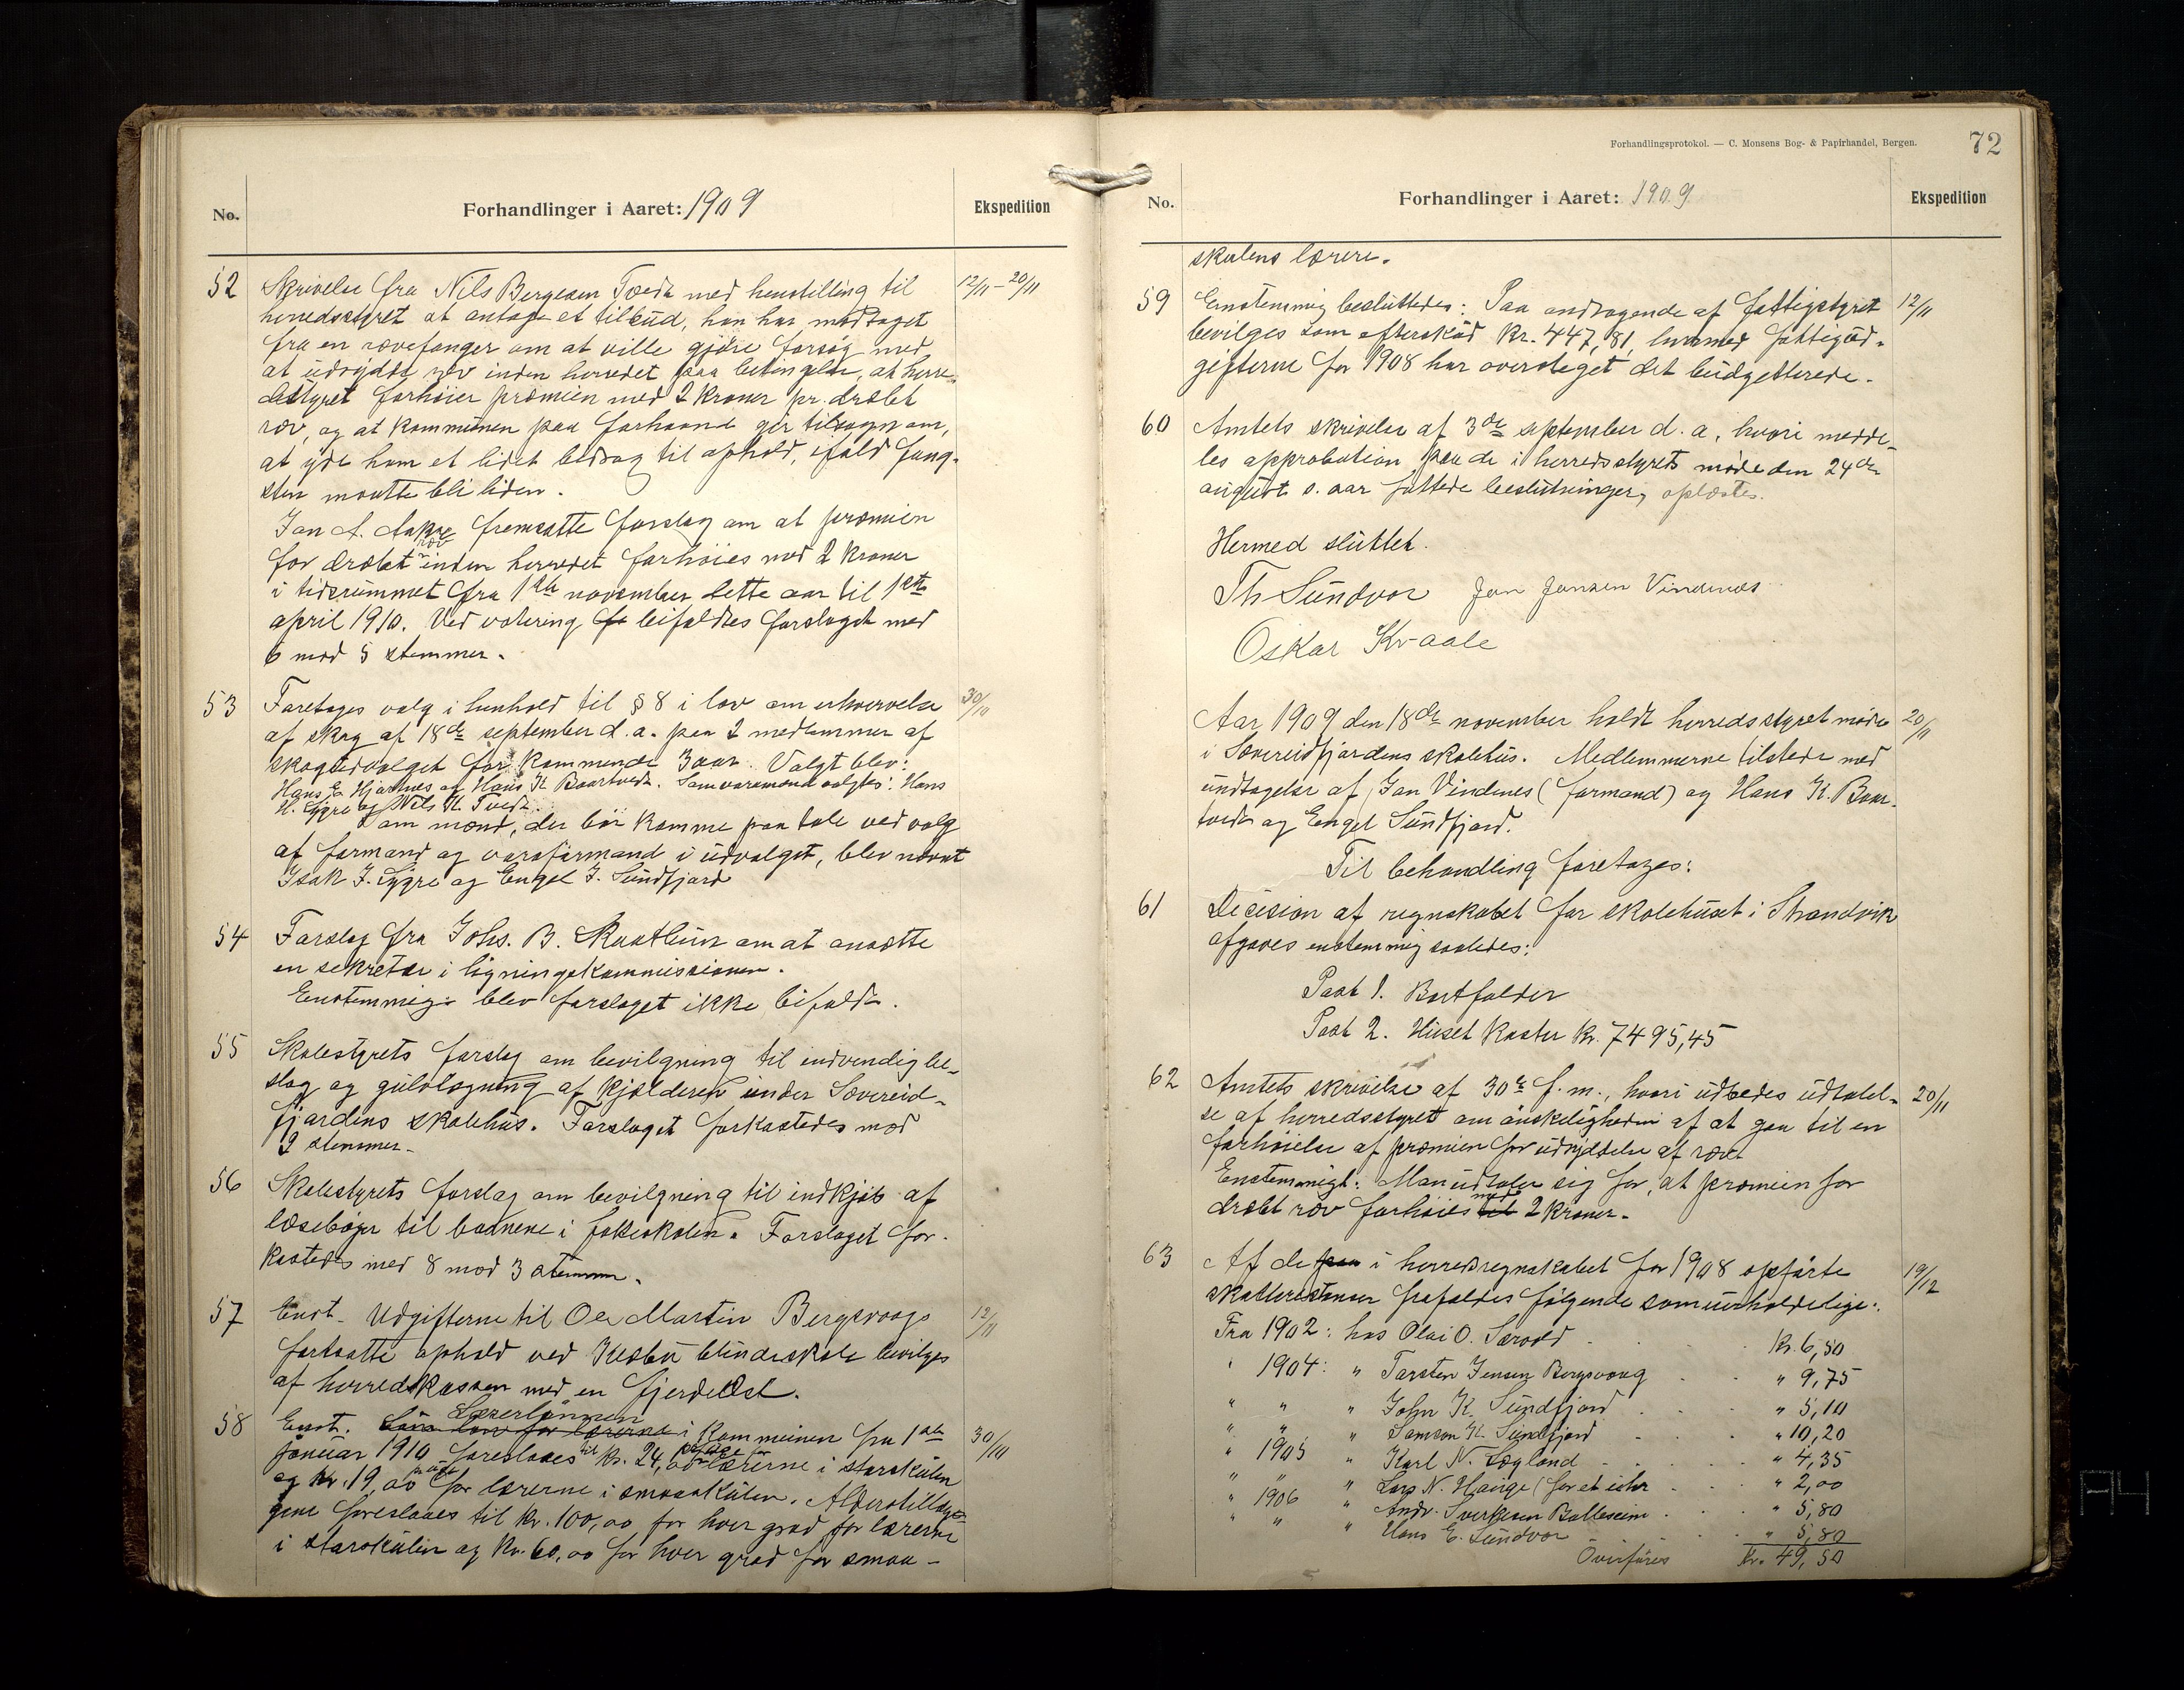 No.
Forhandlinger i Aaret: 1909
Ekspedition
52 Skrivelse fra Nils Bergesen Tveda med henstilling til 12/11 - 20/11
herredsstyret at antage et tilbud, han har modtaget
fra en rævefanger om at ville gjøre forsøg med
at udrydde ræv inden herredet paa betingelse, at herre-
dsstyret forhøier præmien med 2 kroner pr. dræbt
ræv, og at kommunen paa forhaand gir tilsagn om,
at yde ham et lidet bidrag til ophold, ifald fang-
sten maatte bli liden.
Jan A. Aakre fremsatte forslag om at præmien
for dræbt ræv inden herredet forhøies med 2 kroner
i tidsrummet fra 1ste november dette aar til 1ste
april 1910. Ved votering fo bifaldtes forslaget med
6 mod 5 stemmer.
53 Foretages valg i henhold til § 8 i lov om erhvervelse 30/10
af skog af 18de september d.a. paa 2 medlemmer af
skogudvalget for kommende 3 aar. Valgt blev:
Hans E. Hjartnes og Hans K. Baartveda. Som varamænd valgtes: Hans
H. Lygre og Nils H. Tveda.
Som mænd, der bør komme paa tale ved valg
af formand og varaformand i udvalget, blev nævnt
Isak J. Lygre og Engel J. Sundfjord
54 Forslag fra Johs. B. Skaathun om at ansætte
en sekretær i ligningskommissionen.
Enstemmig blev forslaget ikke bifaldt.
55 Skolestyrets forslag om bevilgning til indvendig be-
slag og gulvlægning af kjælderen under Sævereid-
fjordens skolehus. Forslaget forkastedes mod
2 stemmer.
56 Skolestyrets forslag om bevilgning til indkjøb af
læsebøger til barnene i folkeskolen. Forslaget for-
kastedes med 8 mod 3 stemmer.
57 Enst. Udgifterne til Ole Martin Bergsvaags 12/11
fortsatte ophold ved blindeskole bevilges
af herredskassen med en fjerdedel.
58 Enst. Lærerlønnen i kommunen fra 1ste 30/10
januar 1910 foreslaaes til kr. 24,00 pr. uge for lærerne i storskulen
og kr. 19,00 pr. uge for lærerne i smaaskulen. Alderstillæg-
gene foreslaaes til kr. 100,00 for hver grad for lærerne
i storskulen og kr. 60,00 for hver grad for smaa-
Forhandlingsprotokol. — C. Monsens Bog- & Papirhandel, Bergen.
72
No.
Forhandlinger i Aaret: 1909
Ekspedition
skulens lærere.
59 Enstemmig besluttedes: Paa andragende af fattigstyret 12/11
bevilges som efterskud kr. 447,81, hvormed fattigud-
gifterne for 1908 har oversteget det budgetterede.
60 Amtets skrivelse af 3de september d.a., hvori medde-
les approbation paa de i herredsstyrets møde den 24de
august s. aar fattede beslutninger, oplæstes.
Hermed sluttet.
Th Sundvor Jan Jansen Vindenes
Oskar Kvaale
Aar 1909 den 18de november holdt herredsstyret møde 20/11
i Sævereidfjordens skolehus. Medlemmerne tilstede med
undtagelse af Jan Vindenes (formand) og Hans K. Baar-
tveda og Engel Sundfjord.
Til behandling foretoges:
61 Decision af regnskabet for skolehuset i Strandvik
afgaves enstemmig saaledes:
Post 1. Bortfalder
Post 2. Huset koster kr. 7495,45
62 Amtets skrivelse af 30te f.m., hvori udbedes udtalel- 20/11
se af herredsstyret om ønskeligheden af at gaa til en
forhøielse af præmien for udryddelse af ræv.
Enstemmigt: Man udtaler sig for, at præmien for
dræbt ræv forhøies til med 2 kroner.
63 Af de paa i herredsregnskabet for 1908 opførte 19/12
skatterestanser frafaldes følgende som uerholdelige:
Fra 1902: hos Olai O. Særvold kr. 6,50
" 1904: " Torsten Jensen Bergsvaag " 9,75
" " " John K. Sundfjord " 5,10
" " " Samson K. Sundfjord " 10,20
" 1905 " Karl N. Døgland " 4,35
" " " Lars N. Hauge (for et uehr " 2,00
" 1906 " Andr. Sverkesen Balleseim " 5,80
" " " Hans E. Sundvor " 5,80
Overføres kr. 49,50
A4